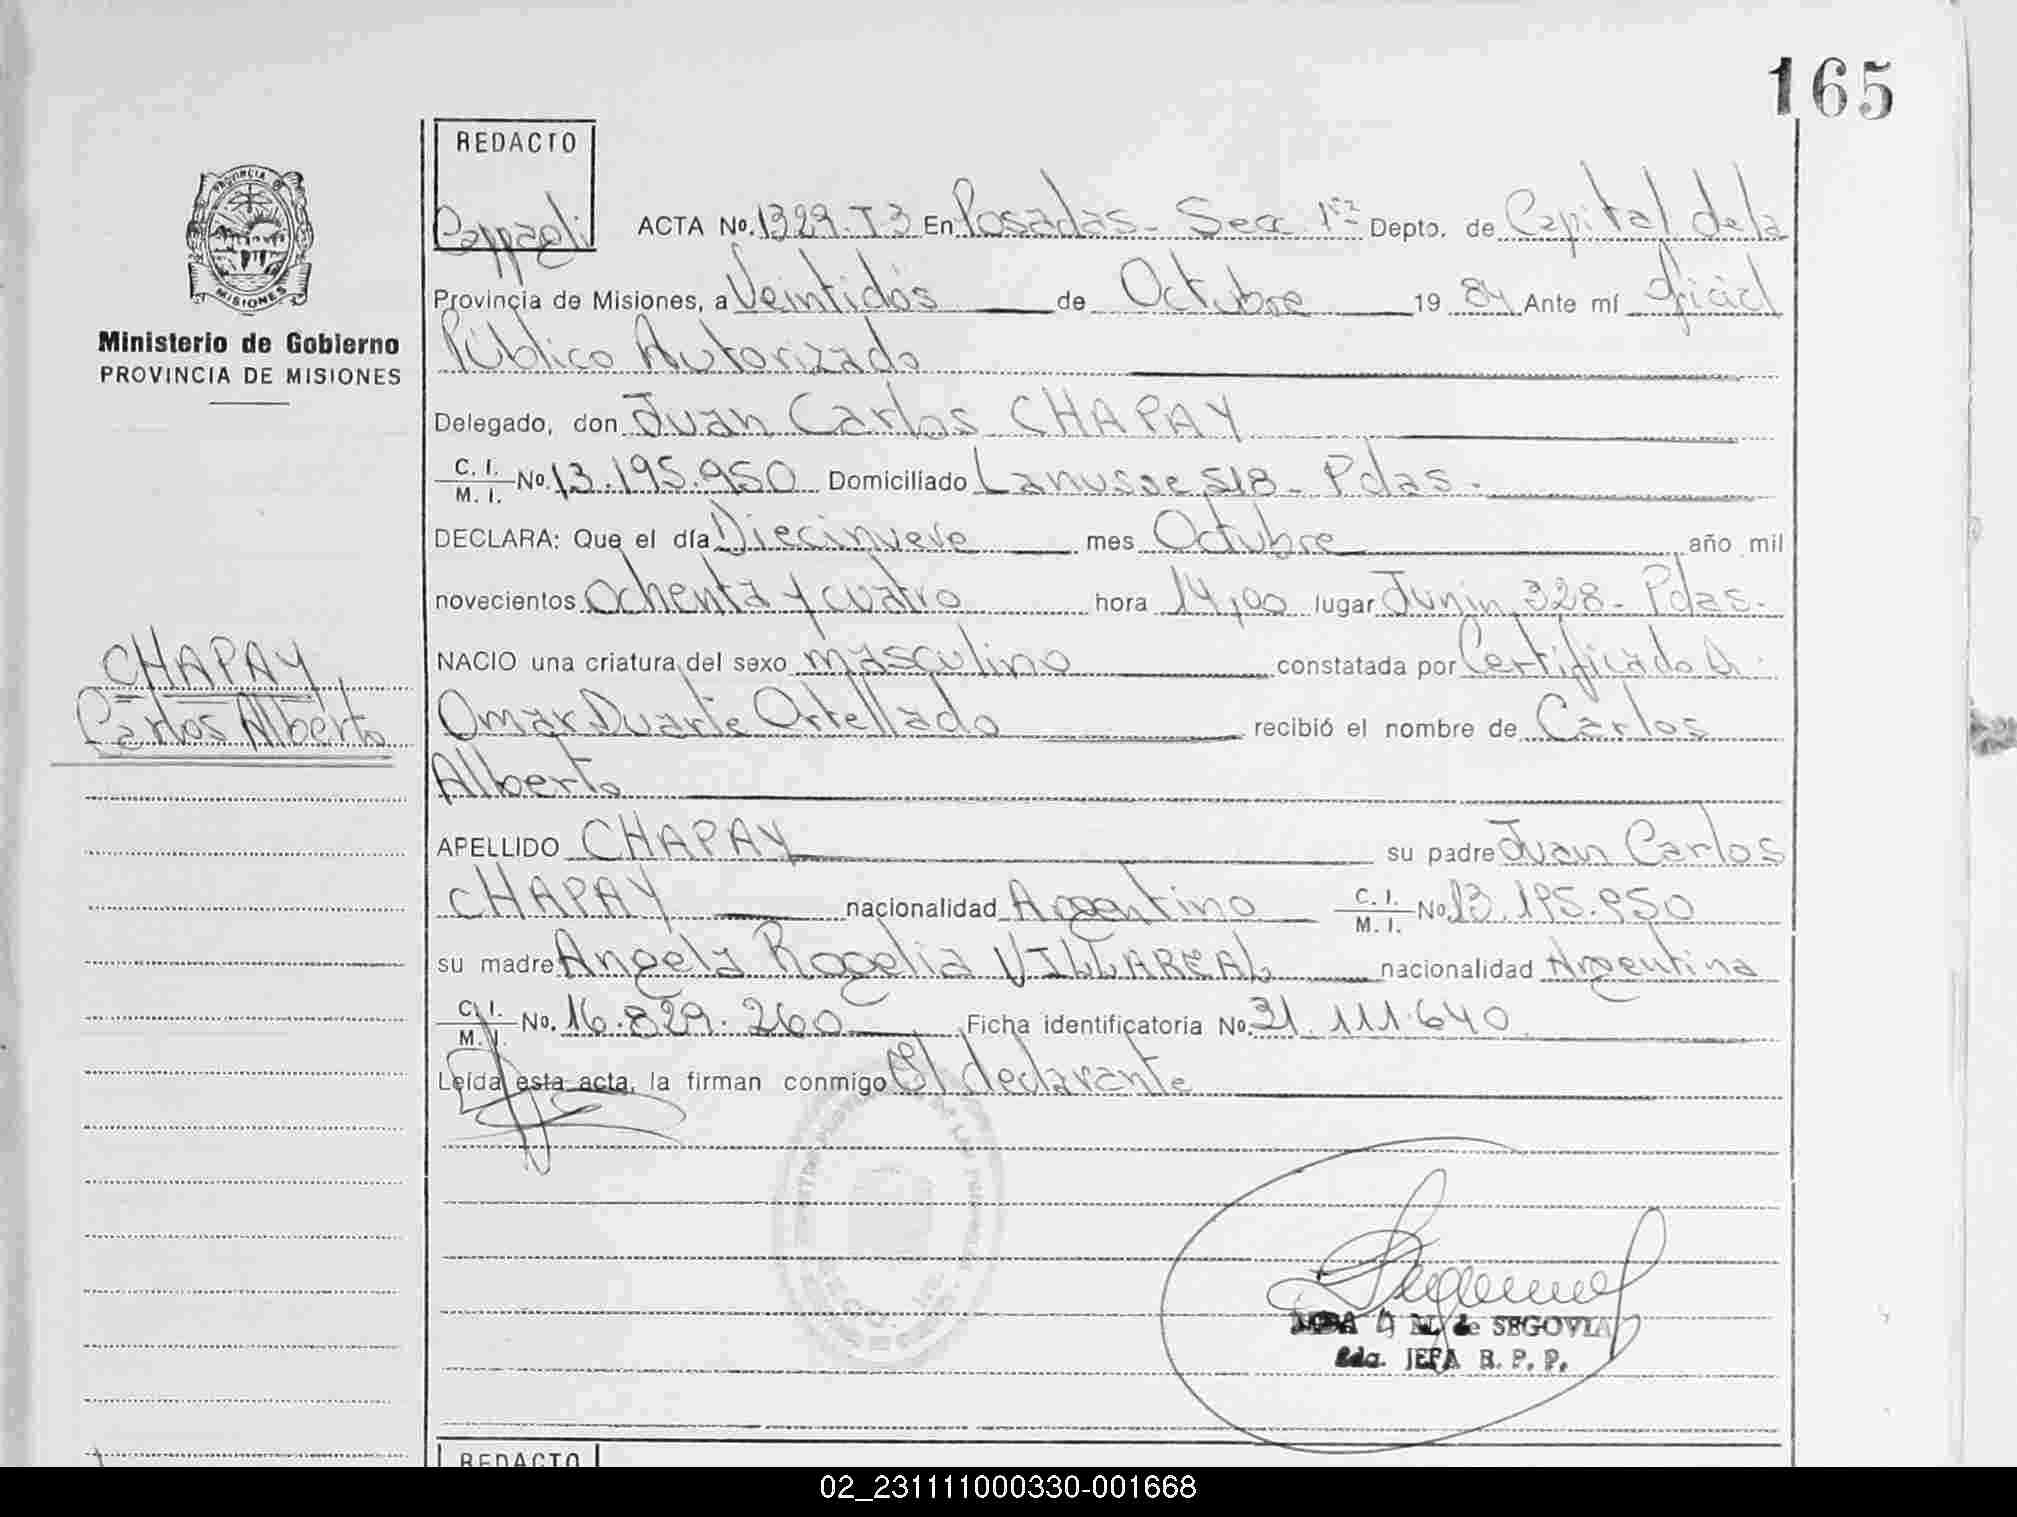 165
REDACTO
Cappaeli
ACTA No. 1329.T3 En Posadas - Secc. 1ra Depto. de Capital de la
Provincia de Misiones, a Veintidós de Octubre 19 84 Ante mí Oficial
Público Autorizado
Delegado, don Juan Carlos CHAPAY
C. I. / M. I. No. 13.195.950 Domiciliado Lanusse 518 - Pdas.
DECLARA: Que el día Diecinueve mes Octubre año mil
novecientos Ochenta y cuatro hora 14,00 lugar Junin 328 - Pdas.
NACIO una criatura del sexo masculino constatada por Certificado Dr.
Omar Duarte Ortellado recibió el nombre de Carlos
Alberto
APELLIDO CHAPAY su padre Juan Carlos
CHAPAY nacionalidad Argentino C. I. / M. I. No. 13.195.950
su madre Angela Rogelia VILLAREAL nacionalidad Argentina
C. I. / M. I. No. 16.829.260 Ficha identificatoria No. 31.111.640
Leída esta acta, la firman conmigo El declarante
PROVINCIA DE
MISIONES
Ministerio de Gobierno
PROVINCIA DE MISIONES
CHAPAY
Carlos Alberto
de SEGOVIA
2da. JEFA R. P. P.
REDACTO
02_231111000330-001668